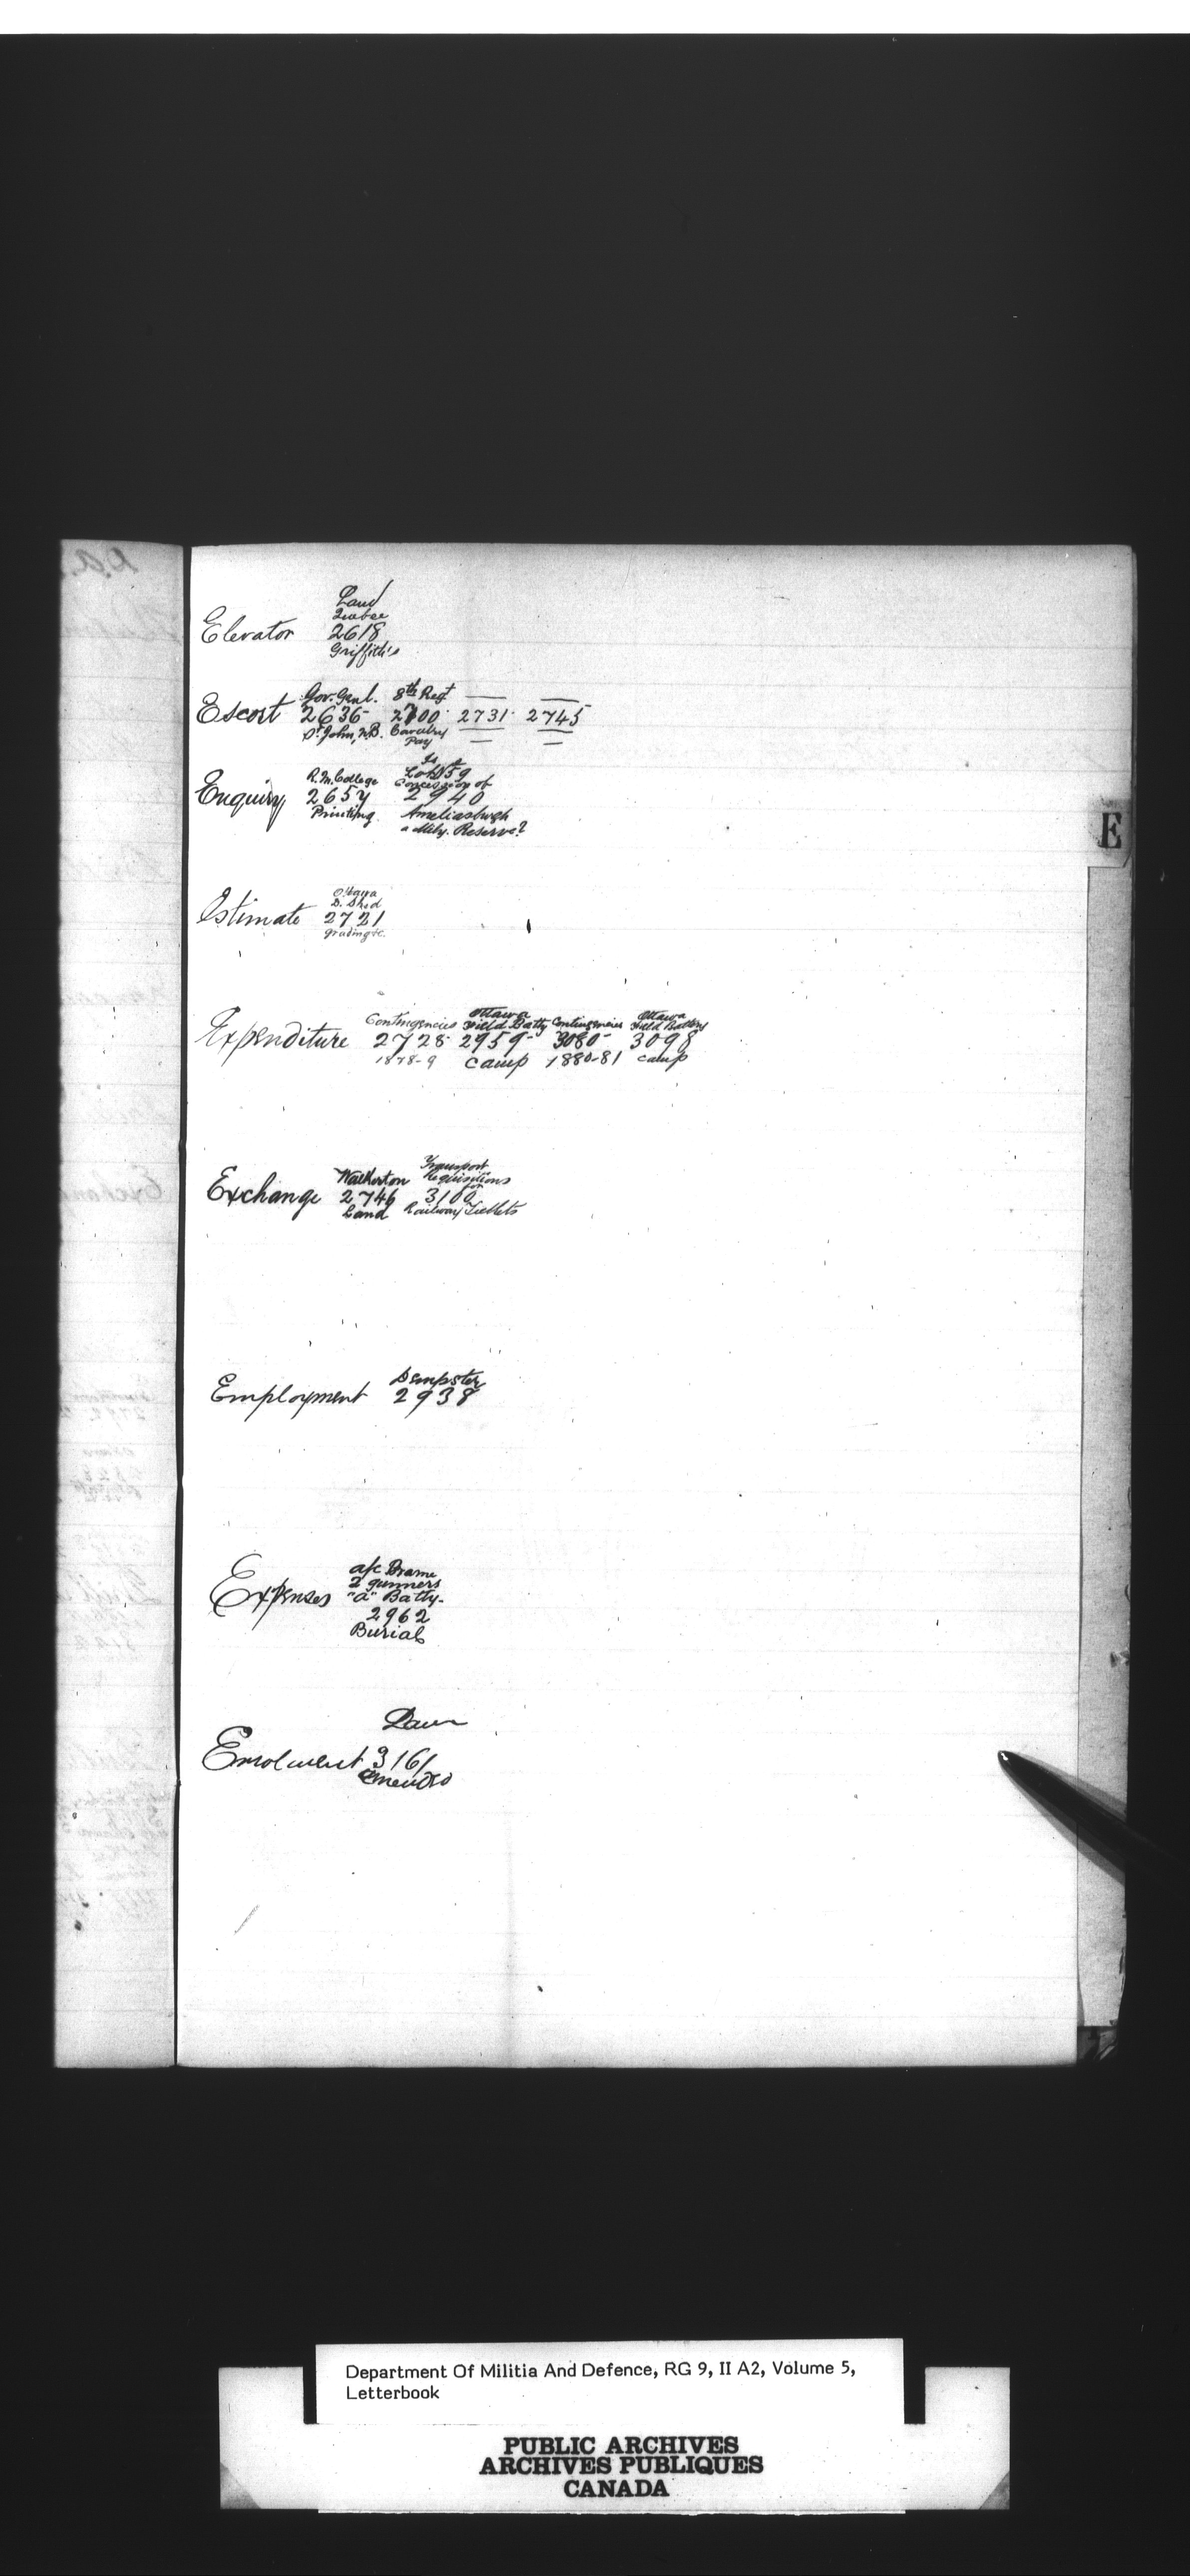 Land
Quebec
Elevator 2618
Griffith's
Gov. Genl. 8th Regt
Escort 2636 2700 2731 2745
St. John, N.B. Cavalry
Pay
Is
R.M. College Lot 59
Concession of
Enquiry 2657 2940
Printing Ameliasburgh
a Mily. Reserve?
E
Ottawa
D. Shed
Estimate 2721
grading &c.
Ottawa Ottawa
Contingencies Field Batty Contingencies Field Battery
Expenditure 2728 2959 3080 3098
1878-9 Camp 1880-81 Camp
Transport
Walkerton Requisitions
for
Exchange 2746 3100
Land Railway Tickets
Dempster
Employment 2938
a/c Brame
2 gunners
Expenses "A" Batty.
2962
Burial
Enrolment 3161
Department Of Militia And Defence, RG 9, II A2, Volume 5,
Letterbook
PUBLIC ARCHIVES
ARCHIVES PUBLIQUES
CANADA